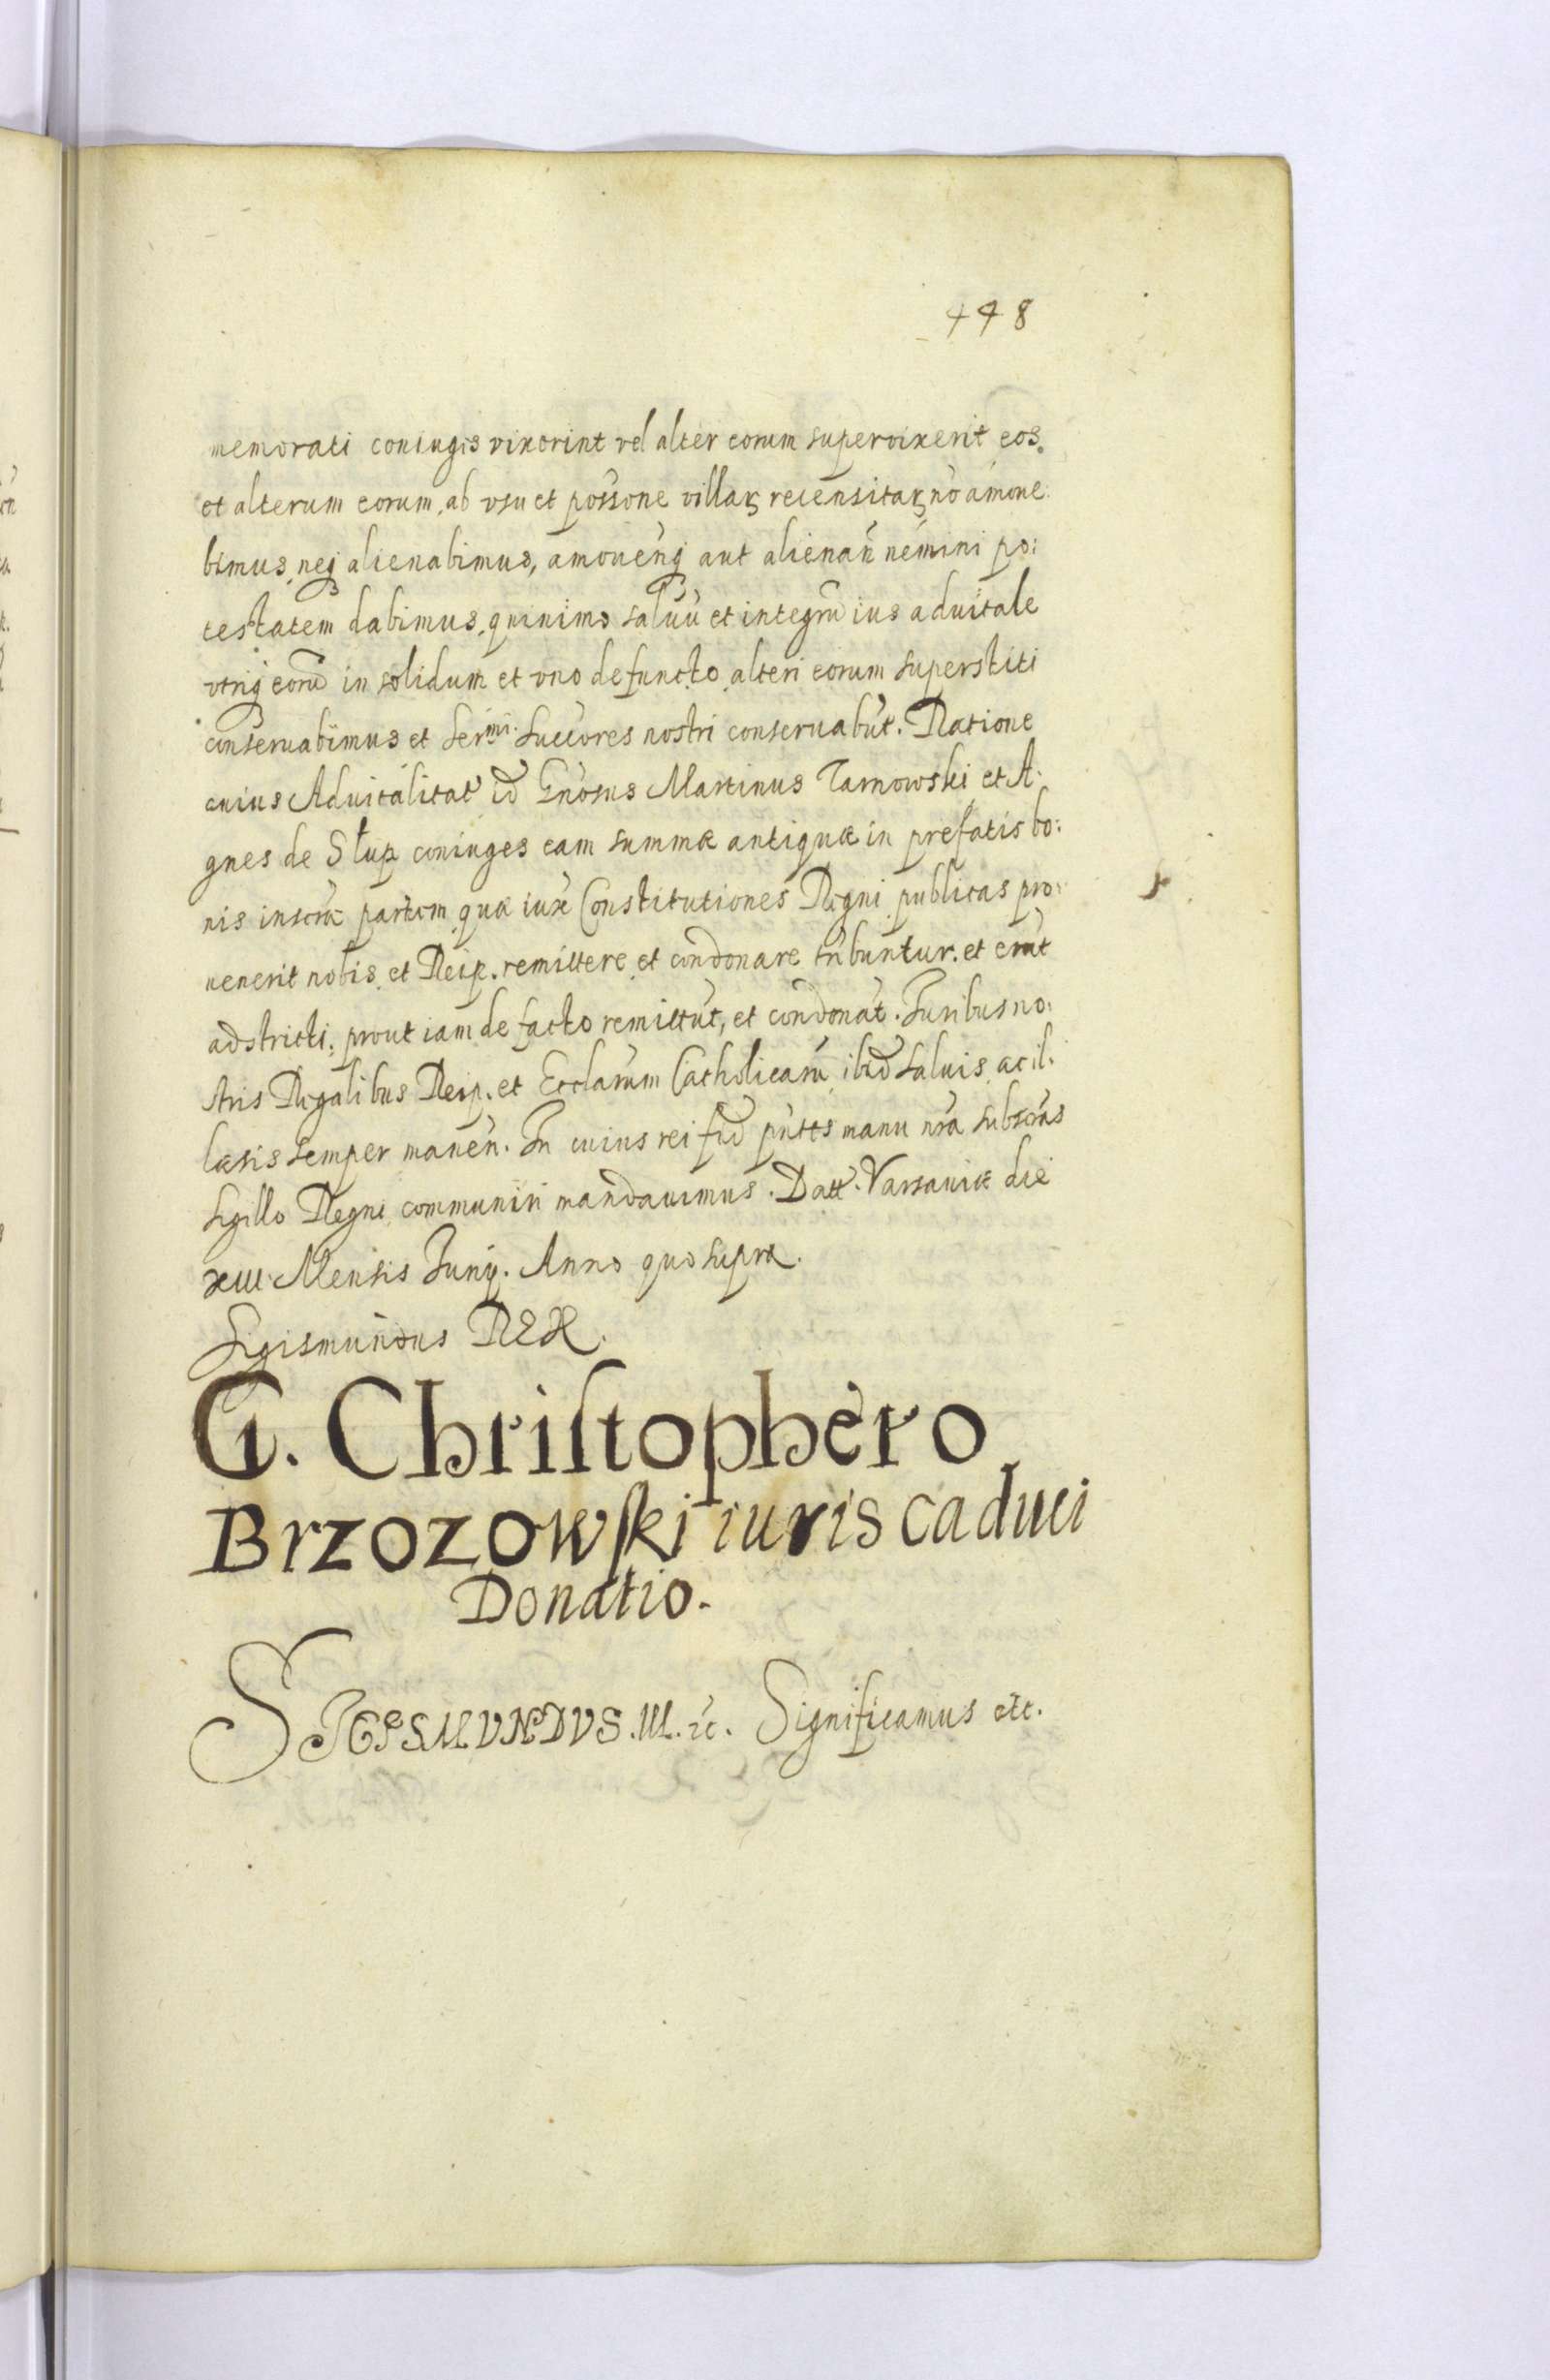 448
memorati coniugis vixerint vel alter eorum supervixerit eos.
et alterum eorum, ab vsu et possone villaꝝ recensitaꝝ nō amone:
bimus, neqꝫ alienabimus, amouēnqꝫ aut alienan̄ nemini po:
testatem dabimus, quinimo saluū et integrū ius aduitale
vtriqꝫ eorū in solidum et vno defuncto alteri eorum superstiti
conseruabimus et Sermi. Succores nostri conseruabūt. Ratione
cuius Aduitalitat id Gnosus Martinus Tarnowski et A:
gnes de Słup coniuges eam summæ antiquæ in prefatis bo:
nis inscræ partem quæ iux Constitutiones Regni publicas pro:
uenerit nobis et Reip. remittere et condonare tribuntur. et erūt
adstricti, prout iam de facto remittūt, et condonāt. Iuribus no:
stris Regalibus Reip. et Ecclarum Catholicarū ibid saluis ac il:
læsis semper manēn. In cuius rei fid pntes manu nrā subscrās
Sigillo Regni communiri mandauimus. Datt. Varsauiæ die
xiii Mensis Iunij. Anno quo supra.
Sigismundus REX.
G. Chriſtophero
Brzozowſki iuris caduci
Donatio.
SIGISMVNDVS. III. ꝛc. Significamus etc.